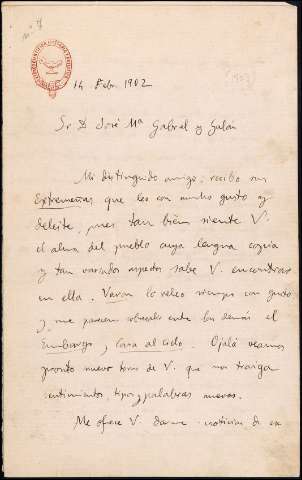 nº 7
14 Febr. 1902
(1902)
Sr D José Mª Gabriel y Galan
Mi distinguido amigo: recibo sus
Extremeñas que leo con mucho gusto y
deleite, pues tan bien siente V.
el alma del pueblo cuya lengua copia
y tan variados aspectos sabe V. encontrar
en ella. Varon lo releo siempre con gusto
y me parecen sobresalir entre los demás el
Embargo, Cara al cielo. Ojalá veamos
pronto nuevo tomo de V. que nos traiga
sentimientos, tipos y palabras nuevos.
Me ofrece V. darme noticias de ex